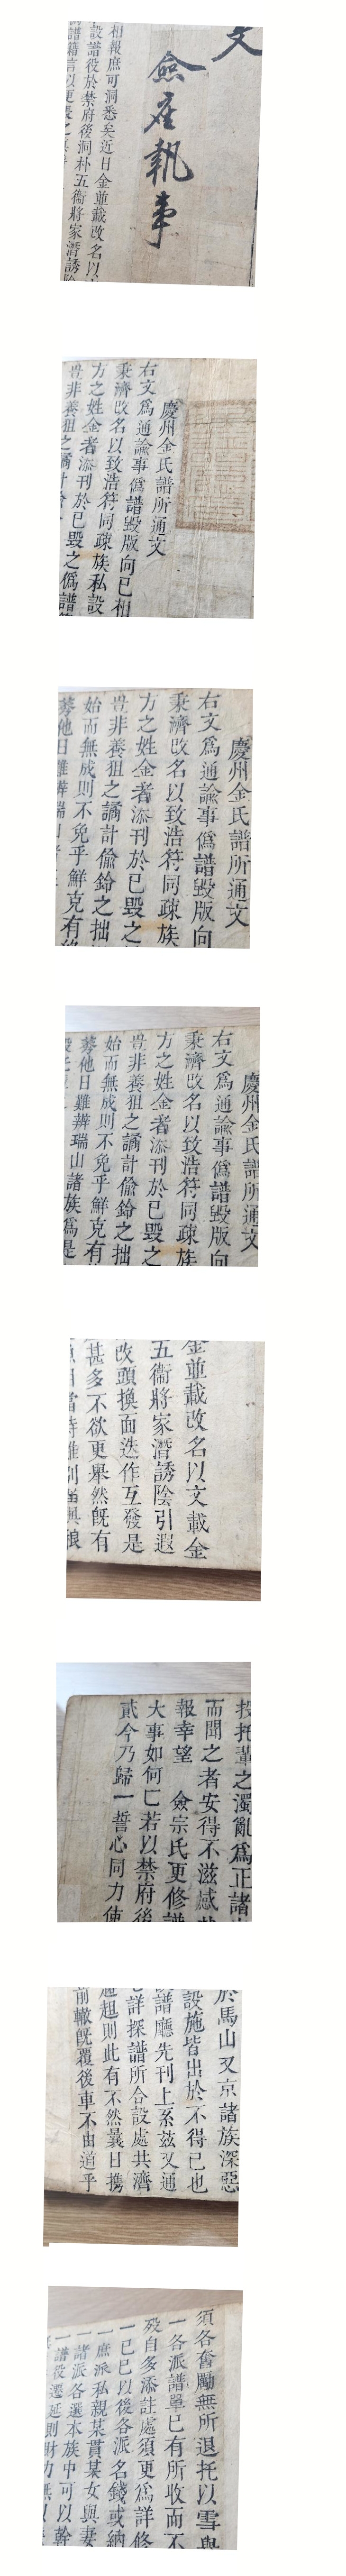 文
僉座執事
相報庶可洞悉矣近日金並載改名以
設譜役於禁府後洞朴五衛將家潛誘
譜籍言以更
慶州金氏譜所通文
右文爲通諭事僞譜毀版向已相
秉濟改名以致浩符同疎族私設
方之姓金者添刊於已毀之僞譜
豈非養狙之譎計
慶州金氏譜所通文
右文爲通諭事僞譜毀版向
秉濟改名以致浩符同疎族
方之姓金者添刊於已毀之
豈非養狙之譎計偸鈴之拙
始而無成則不免乎鮮克有
慶州金氏譜所通文
右文爲通諭事僞譜毀版向
秉濟改名以致浩符同疎族
方之姓金者添刊於已毀之
豈非養狙之譎計偸鈴之拙
始而無成則不免乎鮮克有
蓼他日難辨瑞山諸族爲是
金並載改名以文載金
五衛將家潛誘陰引遐
改頭換面迭作互發是
甚多不欲更擧然旣有
投托輩之濁亂爲正諸
而聞之者安得不滋惑
報幸望 僉宗氏更修譜
大事如何㔾若以禁府後
貳今乃歸一誓心同力使
於馬山又京諸族深惡
設施皆出於不得已也
譜廳先刊上系玆又通
詳探譜所合設處共濟
趄則此有不然曩日携
前轍旣覆後車不由道乎
須各奮勵無所退托以雪
一各派譜單已有所收而不
歿自多添註處須更爲詳修
一已巳以後各派名錢或納
一庶派私親某貫某女與妻
一諸派各選本族中可以幹
一譜役遷延則財力